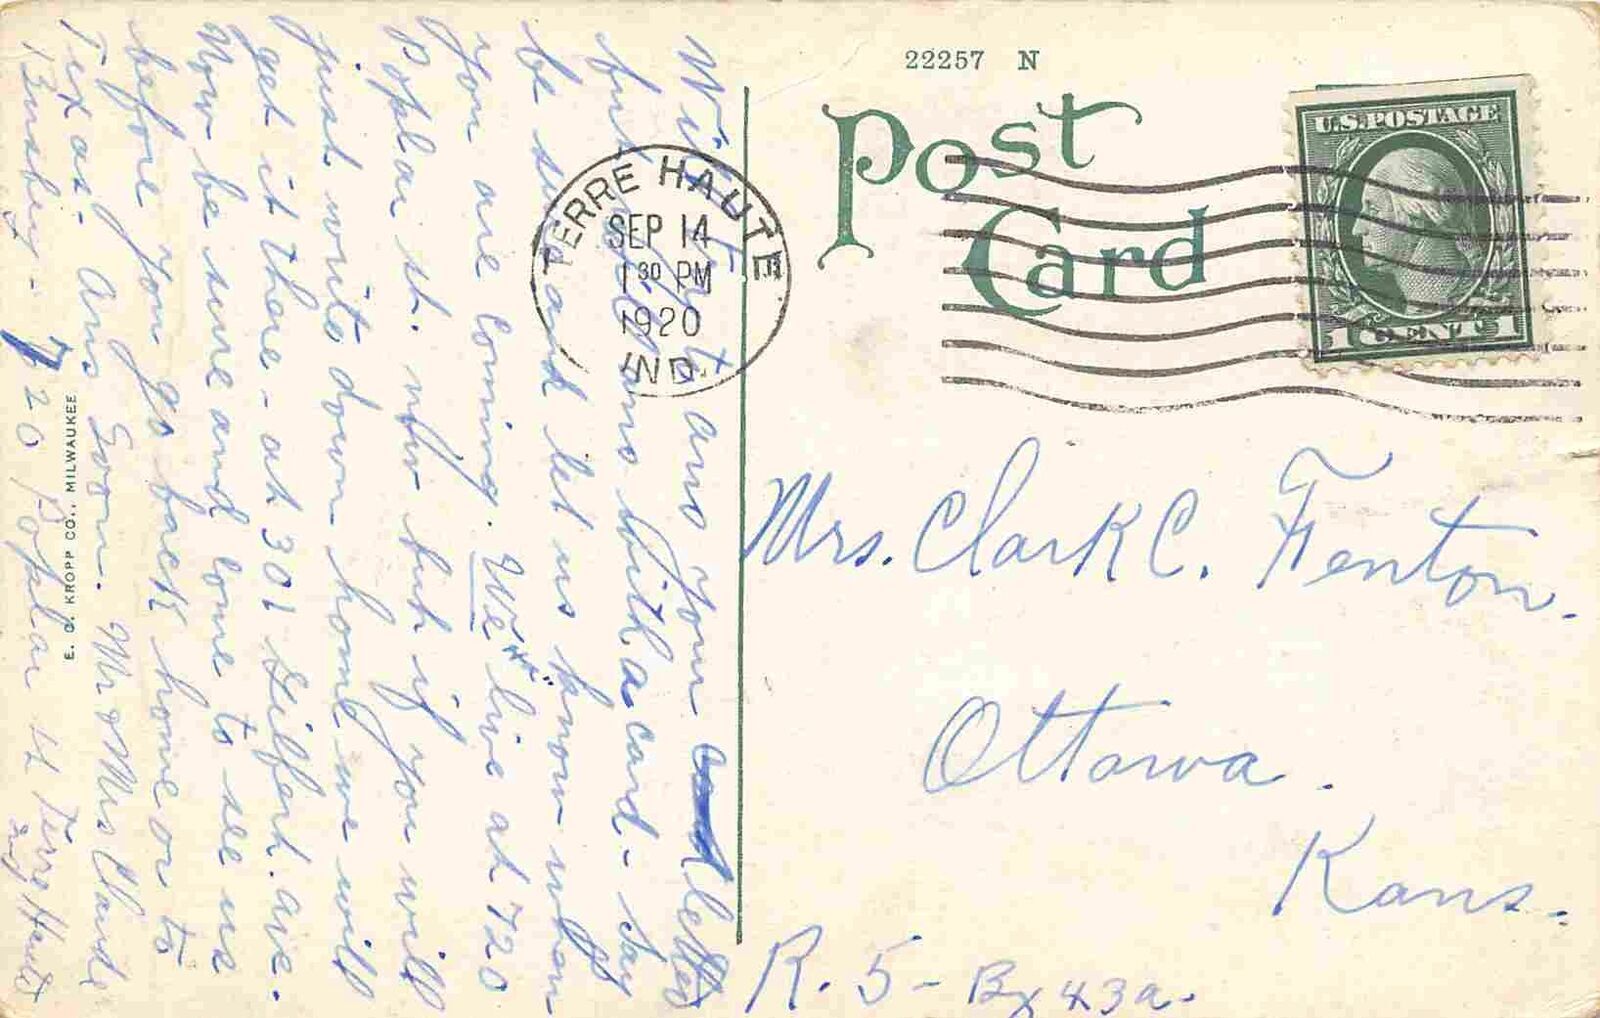 22257 N
Post
Card
U.S.POSTAGE
1 CENT 1
TERRE HAUTE
SEP 14
1 30 PM
1920
IND.
Mrs. Clark C. Fenton.
Ottawa.
Kans.
R. 5 - Bx 43a.
Will try to ans your letter
but will ans with a card - say
be sure and let us know when
you are coming. We live at 720
Poplar st. now but if you will
just write down home we will
get it there - at 301 Gilbert ave.
Now be sure and come to see us
before you go back home or to
Texas. Ans soon. Mr & Mrs Claude
Busbey - 720 Poplar st Terre Haute
Ind
E. C. KROPP CO., MILWAUKEE